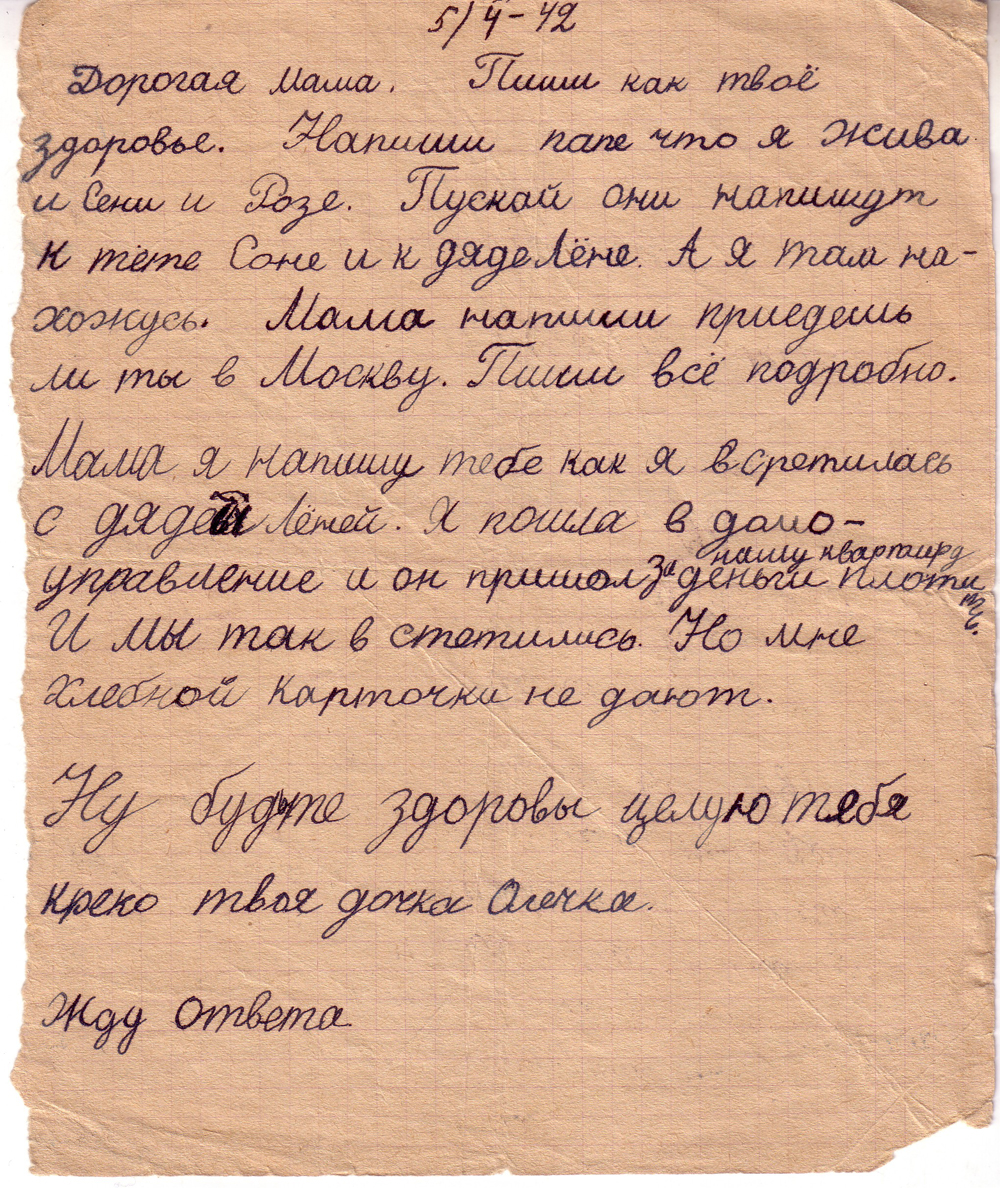 5/II-42
Дорогая мама. Пиши как твоё
здоровье. Напиши папе что я жива
и Сени и Розе. Пускай они напишут
к тёте Соне и к дяде Лёне. А я там на-
хожусь. Мама напиши приедешь
ли ты в Москву. Пиши всё подробно.
Мама я напишу тебе как я всретилась
с дядей Лёней. Я пошла в домо-
нашу квартиру
управление и он пришол за деньги плотить.
И мы так в стетились. Но мне
хлебной карточки не дают.
Ну будьте здоровы целую тебя
креко твоя дочка Олечка.
Жду ответа